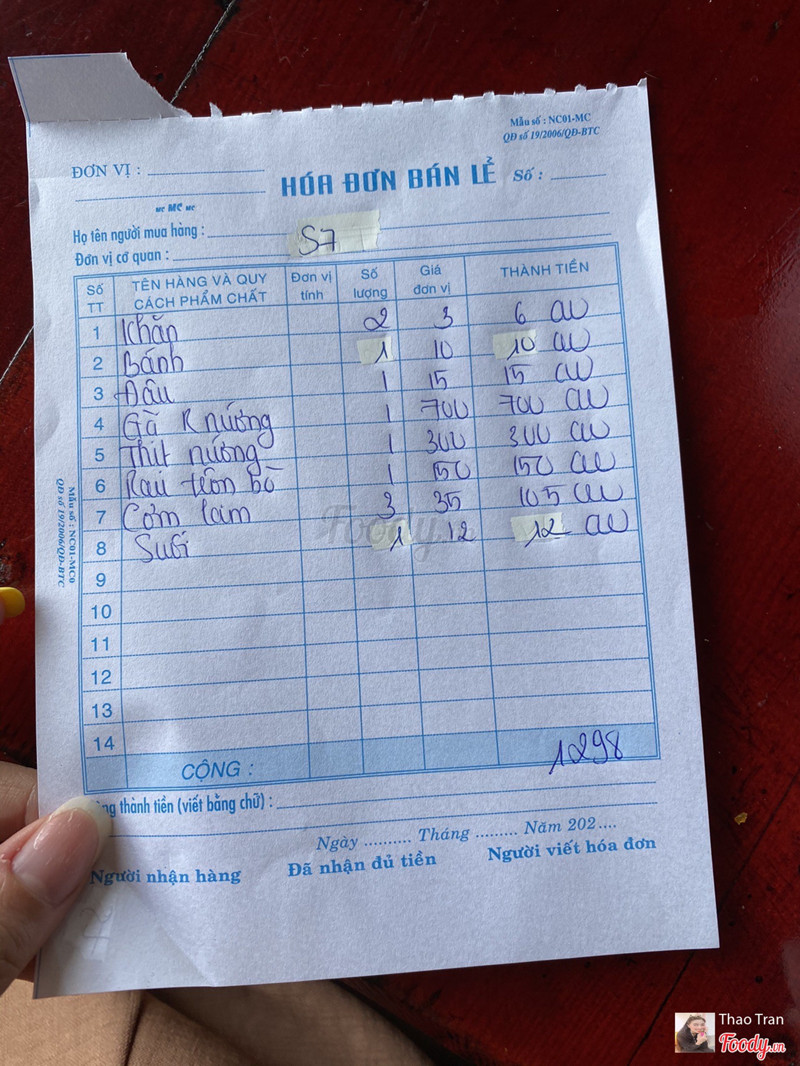 Mẫu số : NC01-MC
QĐ số 19/2006/QĐ-BTC
ĐƠN VỊ :
HÓA ĐƠN BÁN LẺ Số :
MC
Họ tên người mua hàng : S7
Đơn vị cơ quan :
Số TT TÊN HÀNG VÀ QUY CÁCH PHẨM CHẤT Đơn vị tính Số lượng Giá đơn vị THÀNH TIỀN
1 Khăn 2 3 6
2 Bánh 1 10 10
3 Đâu 1 15 15
4 Gà K nướng 1 700 700
5 Thịt nướng 1 300 300
6 Rau trộn bò 1 150 150
7 Cơm lam 3 35 105
8 Suối 1 12 12
9
10
11
12
13
14
CỘNG : 1298
thành tiền (viết bằng chữ) :
Ngày .......... Tháng ......... Năm 202....
Người nhận hàng Đã nhận đủ tiền Người viết hóa đơn
Mẫu số : NC01-MC0
QĐ số 19/2006/QĐ-BTC
Foody
Thao Tran
Foody.vn